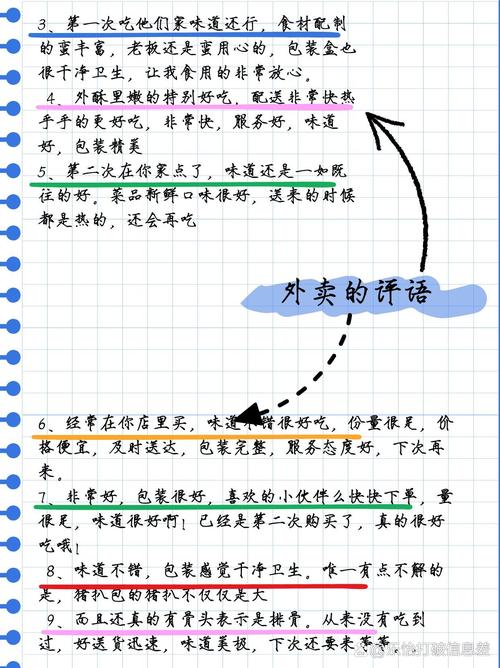 3、第一次吃他们家味道还行，食材配制
的蛮丰富，老板还是蛮用心的，包装盒也
很干净卫生，让我食用的非常放心。
4、外酥里嫩的特别好吃，配送非常快热
乎乎的更好吃，非常快，服务好，味道
好，包装精美
5、第二次在你家点了，味道还是一如既
往的好。菜品新鲜口味很好，送来的时候
都是热的，还会再吃
外卖的评语
6、经常在你店里买，味道不错很好吃，份量很足，价
格便宜，及时送达，包装完整，服务态度好，下次再
来。
7、非常好，包装很好，喜欢的小伙伴么快快下单，量
很足，味道很好啊！已经是第二次购买了，真的很好
吃哦！
8、味道不错，包装感觉干净卫生。唯一有点不解的
是，猪扒包的猪扒不仅仅是大
9、而且还真的有骨头表示是排骨。从来没有吃到
过，好送货迅速，味道美极，下次还要来等等。
打破信息差